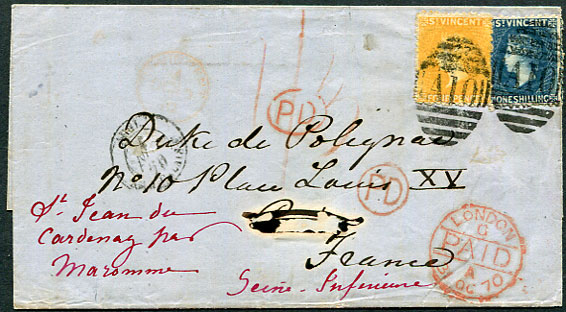 ST VINCENT
FOUR PENCE
ST VINCENT
ONE SHILLING
A10
PD
Duke de Polignac
No 10 Place Louis XV
PD
France
St Jean du
Cardenay par
Maromme
Seine-Inférieure
LONDON
PAID
OC 70